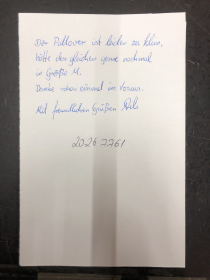 Der Pullover ist leider zu klein,
hätte den gleichen gerne nochmal
in Größe M.
Danke schon einmal im Voraus.
Mit freundlichen Grüßen
20267761